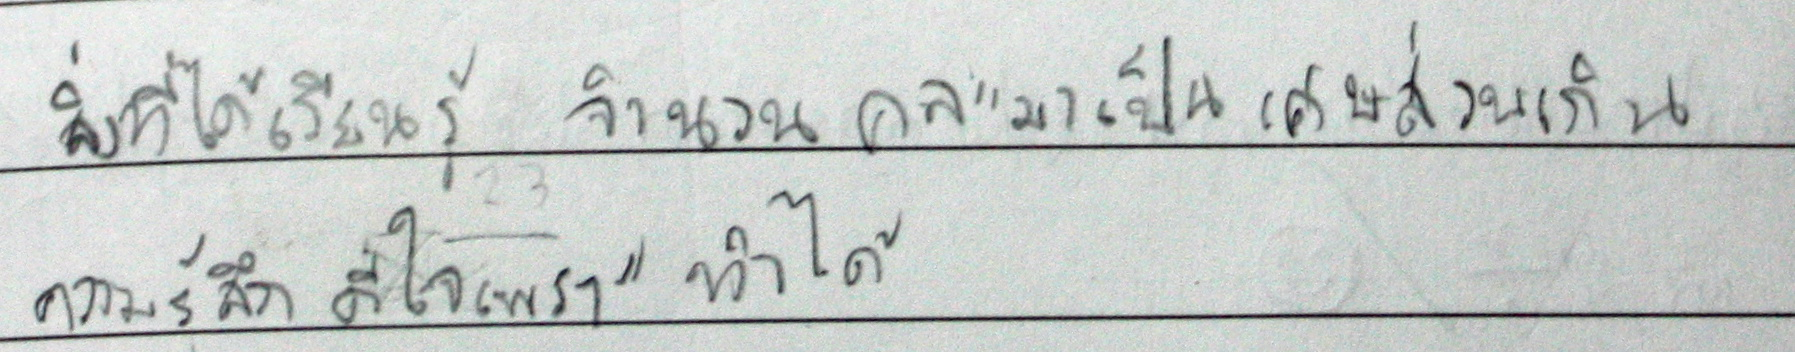 สิ่งที่ได้เรียนรู้ จำนวน คละมาเป็น เศษส่วนเกิน
ความรู้สึก ดีใจเพราะ ทำได้